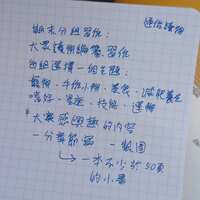 通俗讀物
期末分組習作：
大眾讀物編纂習作
每組選擇一個主題：
寵物、手作小物、美食、減肥養生
嗜好、家庭、技能、運動
*大眾感興趣的內容
一分章節 一製圖
→一本不少於50頁
的小書